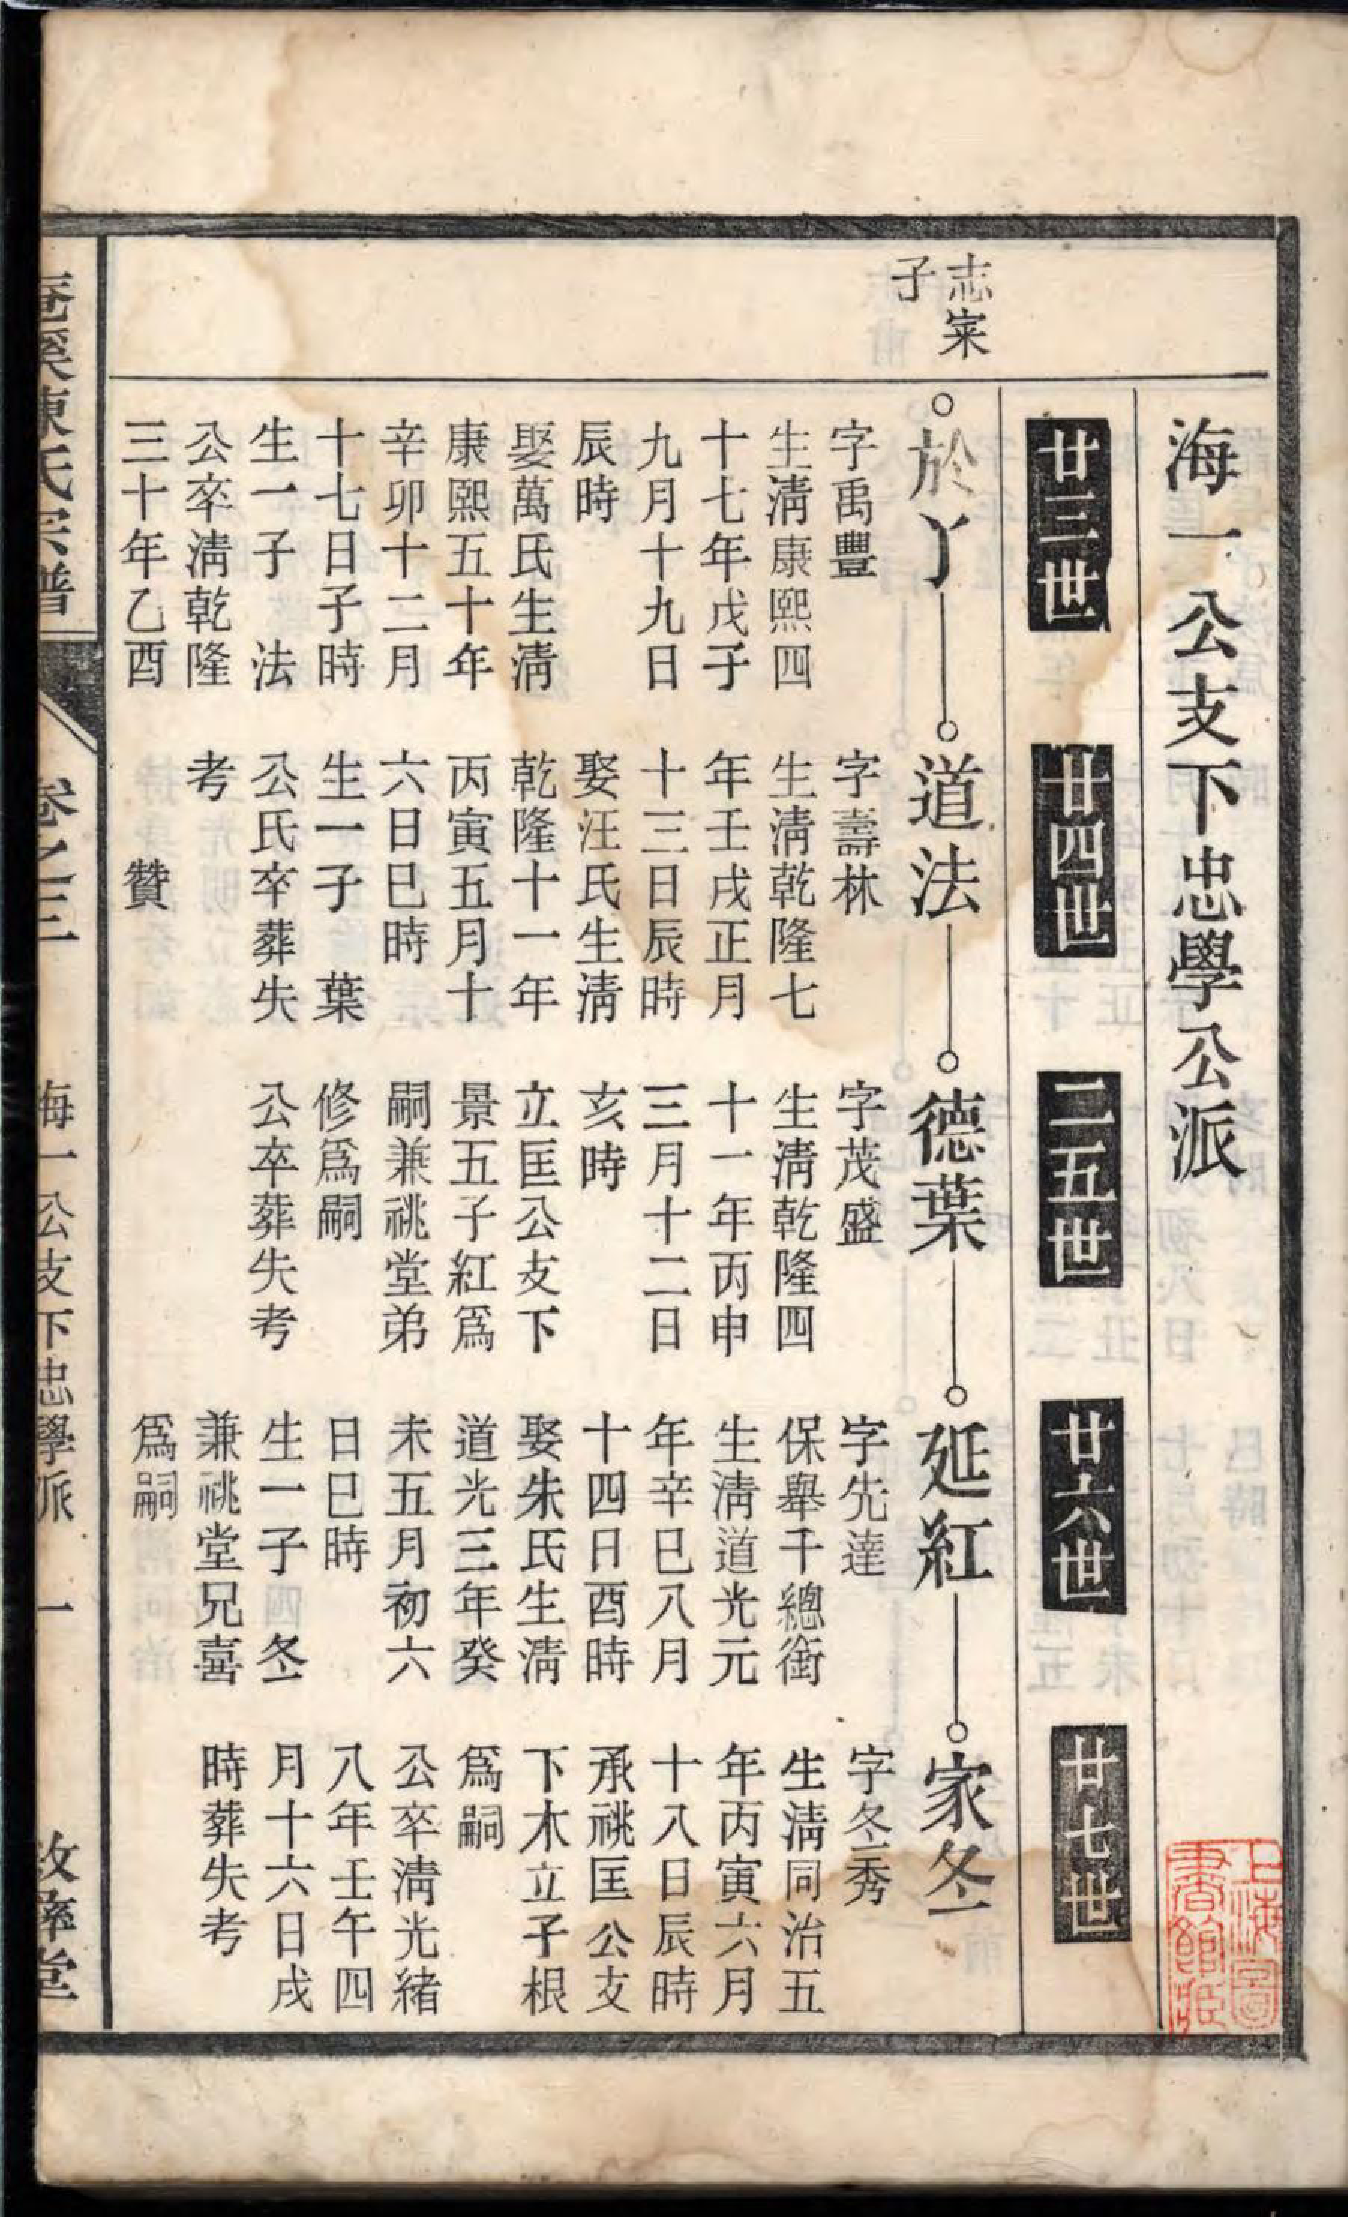 海一公支下忠學公派
廿三世
廿四世
二五世
廿六世
廿七世
志寀
子
於丫
字禹豐
生淸康熙四
十七年戊子
九月十九日
辰時
娶萬氏生淸
康熙五十年
辛卯十二月
十七日子時
生一子 法
公卒淸乾隆
三十年乙酉
道法
字壽林
生淸乾隆七
年壬戌正月
十三日辰時
娶汪氏生淸
乾隆十一年
丙寅五月十
六日巳時
生一子 葉
公氏卒葬失
考
贊
德葉
字茂盛
生淸乾隆四
十一年丙申
三月十二日
亥時
立匡公支下
景五子紅爲
嗣兼祧堂弟
修爲嗣
公卒葬失考
延紅
字先達
保舉千總銜
生淸道光元
年辛巳八月
十四日酉時
娶朱氏生淸
道光三年癸
未五月初六
日巳時
生一子 冬
兼祧堂兄喜
爲嗣
家冬
字冬秀
生淸同治五
年丙寅六月
十八日辰時
承祧匡公支
下木立子根
爲嗣
公卒淸光緒
八年壬午四
月十六日戌
時葬失考
溪陳氏宗譜
卷之三
海一公支下忠學派
一
堂
上海圖書館藏